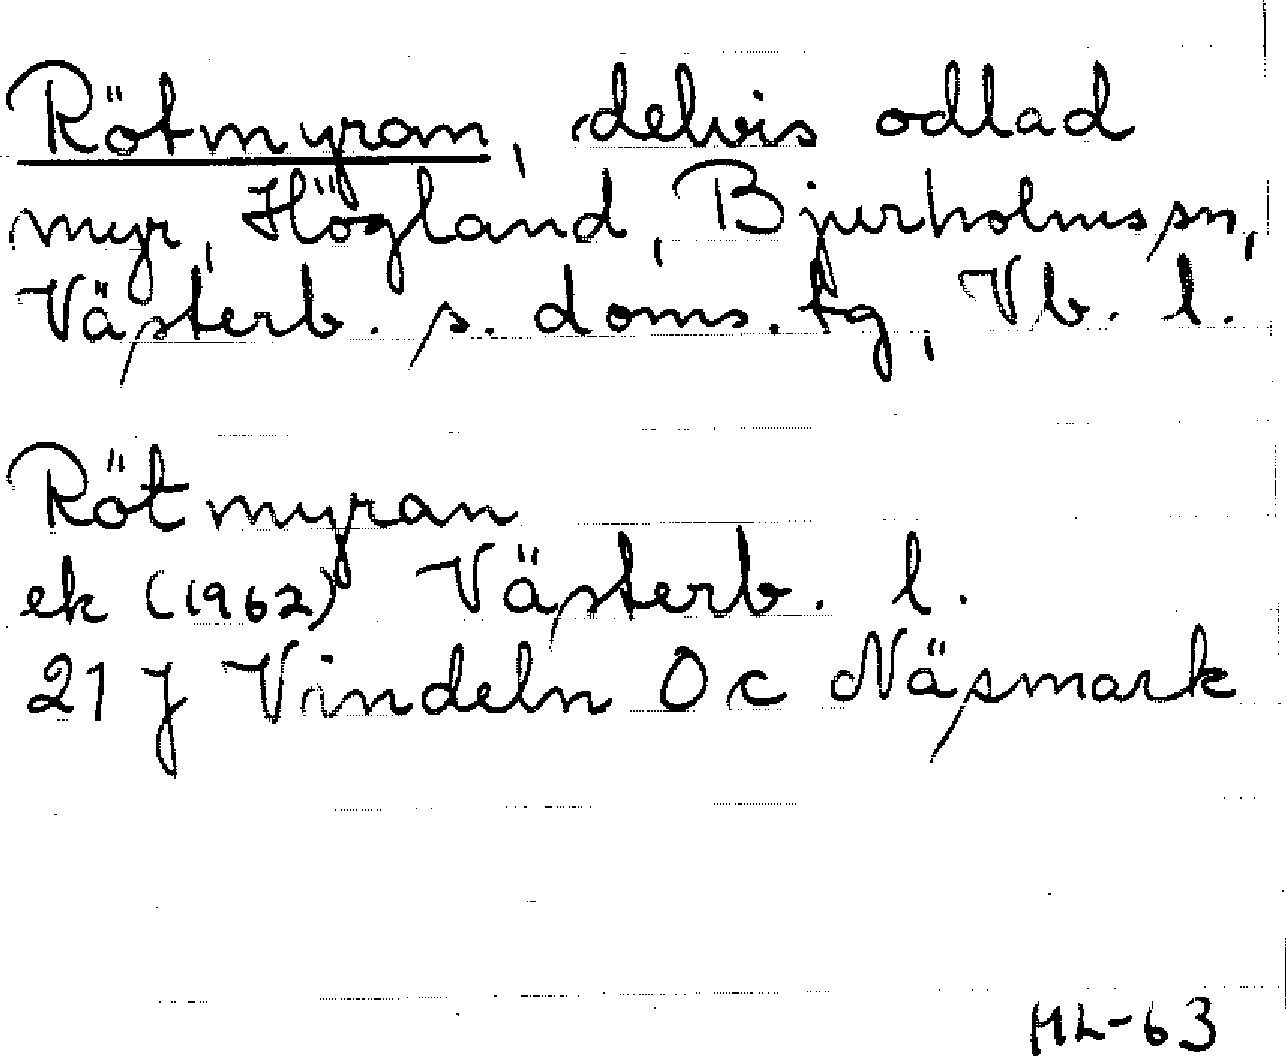 Rötmyran, delvis odlad
myr, Högland, Bjurholms sn,
Västerb. s. doms. tg, Vb. l.
Rötmyran
ek (1962) Västerb. l.
21 J Vindeln Oc Näsmark
HL-63